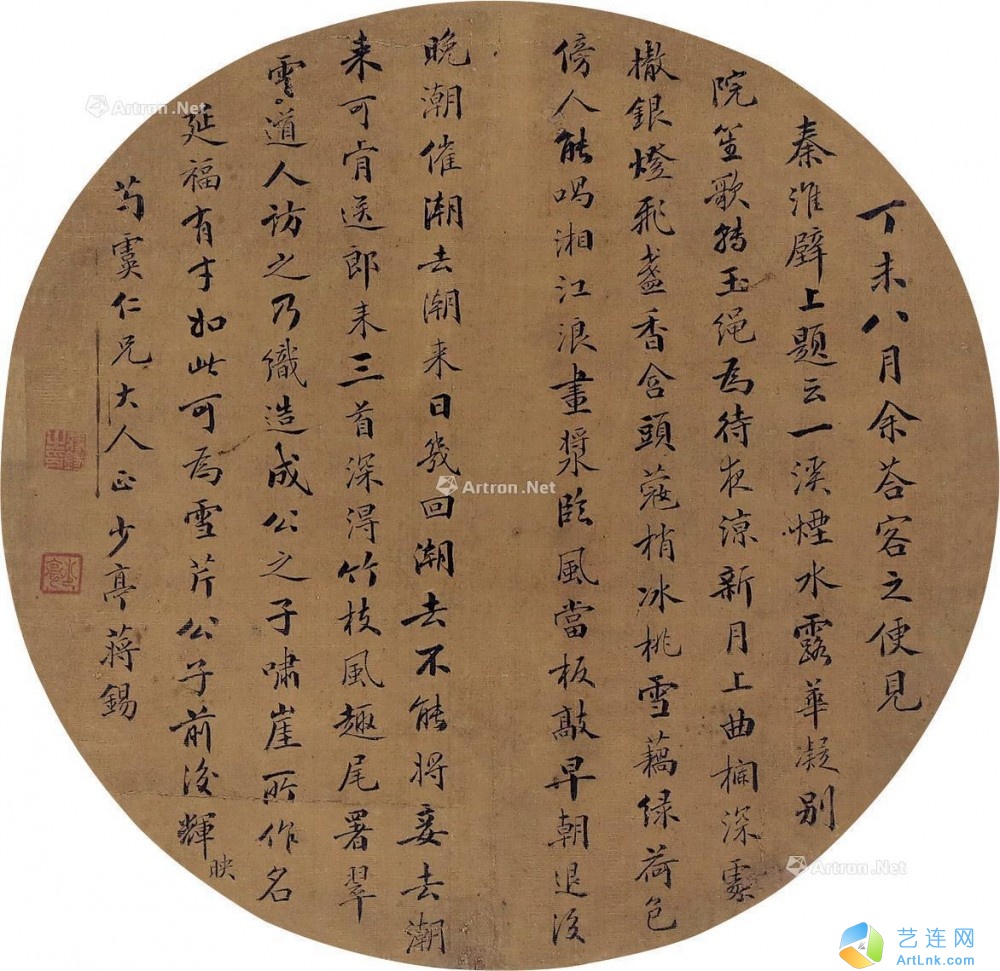 丁未八月余荅客之便見
秦淮壁上題云一溪煙水露華凝别
院笙歌轉玉繩為待夜涼新月上曲欄深處
撤銀燈飛盞香含頭蔻梢冰桃雪藕绿荷包
傍人能唱湘江浪畫槳臨風當板敲早朝退後
晚潮催潮去潮来日幾回潮去不能將妾去潮
来可肯送郎来三首深得竹枝風趣尾署翠
雲道人訪之乃織造成公之子嘯崖所作名
延福有才如此可為雪芹公子前後輝映
芶虞仁兄大人正少亭蔣錫
Artron.Net
Artron.Net
Artron.Net
Artron.Net
艺连网
ArtLink.com